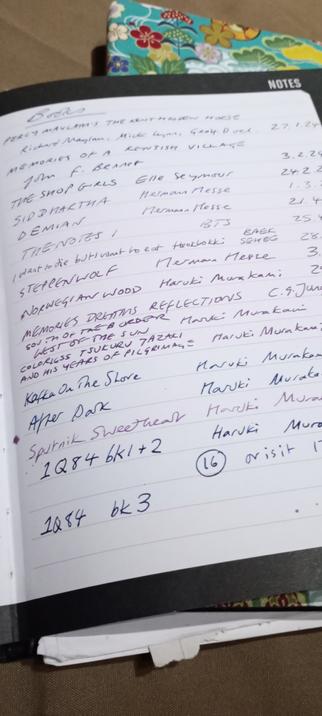 NOTES
Books
PERCY MAYLAM'S THE KENT HOODEN HORSE
Richard Maylam, Mick Lynn, Geoff Doel. 27.1.24
MEMORIES OF A KENTISH VILLAGE
John F. 3.2.24
THE SHOP GIRLS Elle Seymour 24.2.2
SIDDHARTHA Hermann Hesse 1.3.
DEMIAN Hermann Hesse 21.4
THE NOTES 1 BTS 25.4
I want to die but I want to eat tteokbokki BAEK SEHEE 28.
STEPPENWOLF Herman Hesse 3.
NORWEGIAN WOOD Haruki Murakami 2
MEMORIES DREAMS REFLECTIONS C.G. Jun
SOUTH OF THE BORDER Haruki Murakami
WEST OF THE SUN
COLORLESS TSUKURU TAZAKI Haruki Murakam
AND HIS YEARS OF PILGRIMAGE
Kafka On The Shore Haruki Murakam
After Dark Haruki Muraka
Sputnik Sweetheart Haruki Mura
1Q84 bk1+2 Haruki Mura
16 or is it 1
1Q84 bk 3